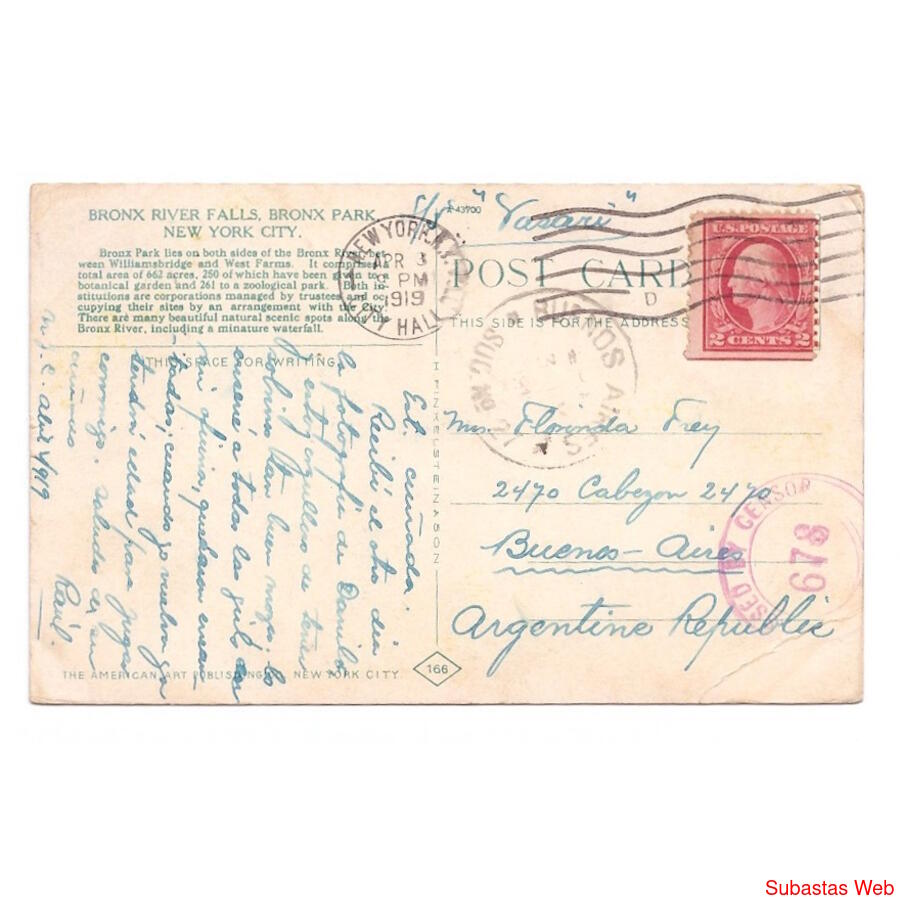 BRONX RIVER FALLS, BRONX PARK,
NEW YORK CITY.
Bronx Park lies on both sides of the Bronx River bet-
ween Williamsbridge and West Farms. It comprises a
total area of 662 acres, 250 of which have been given to a
botanical garden and 261 to a zoological park. Both in-
stitutions are corporations managed by trustees and oc-
cupying their sites by an arrangement with the City.
There are many beautiful natural scenic spots along the
Bronx River, including a minature waterfall.
THIS SPACE FOR WRITING
Est. cuñada.
Recibí el otro día
la fotografía de Danilo
estoy orgulloso de tener
sobrino tan buen mozo. lo
enseñé a todas las girls de
mi oficina, quedaron encan-
tadas; cuando yo vuelva ya
tendrá edad para jugar
conmigo. saluda de su
cuñado
Raúl.
N.Y.C. abril 4/919
THE AMERICAN ART PUBLISHING CO. NEW YORK CITY.
H FINKELSTEIN & SON
166
A-43700
S/S "Vasari"
POST CARD
THIS SIDE IS FOR THE ADDRESS
NEW YORK, N.Y.
APR 3
PM
1919
CITY HALL
D
U.S. POSTAGE
2 CENTS 2
BUENOS AIRES
SUC. No
Mrs. Florinda Frey
2470 Cabezon 2470
Buenos-Aires
Argentine Republic
SED BY CENSOR
678
Subastas Web